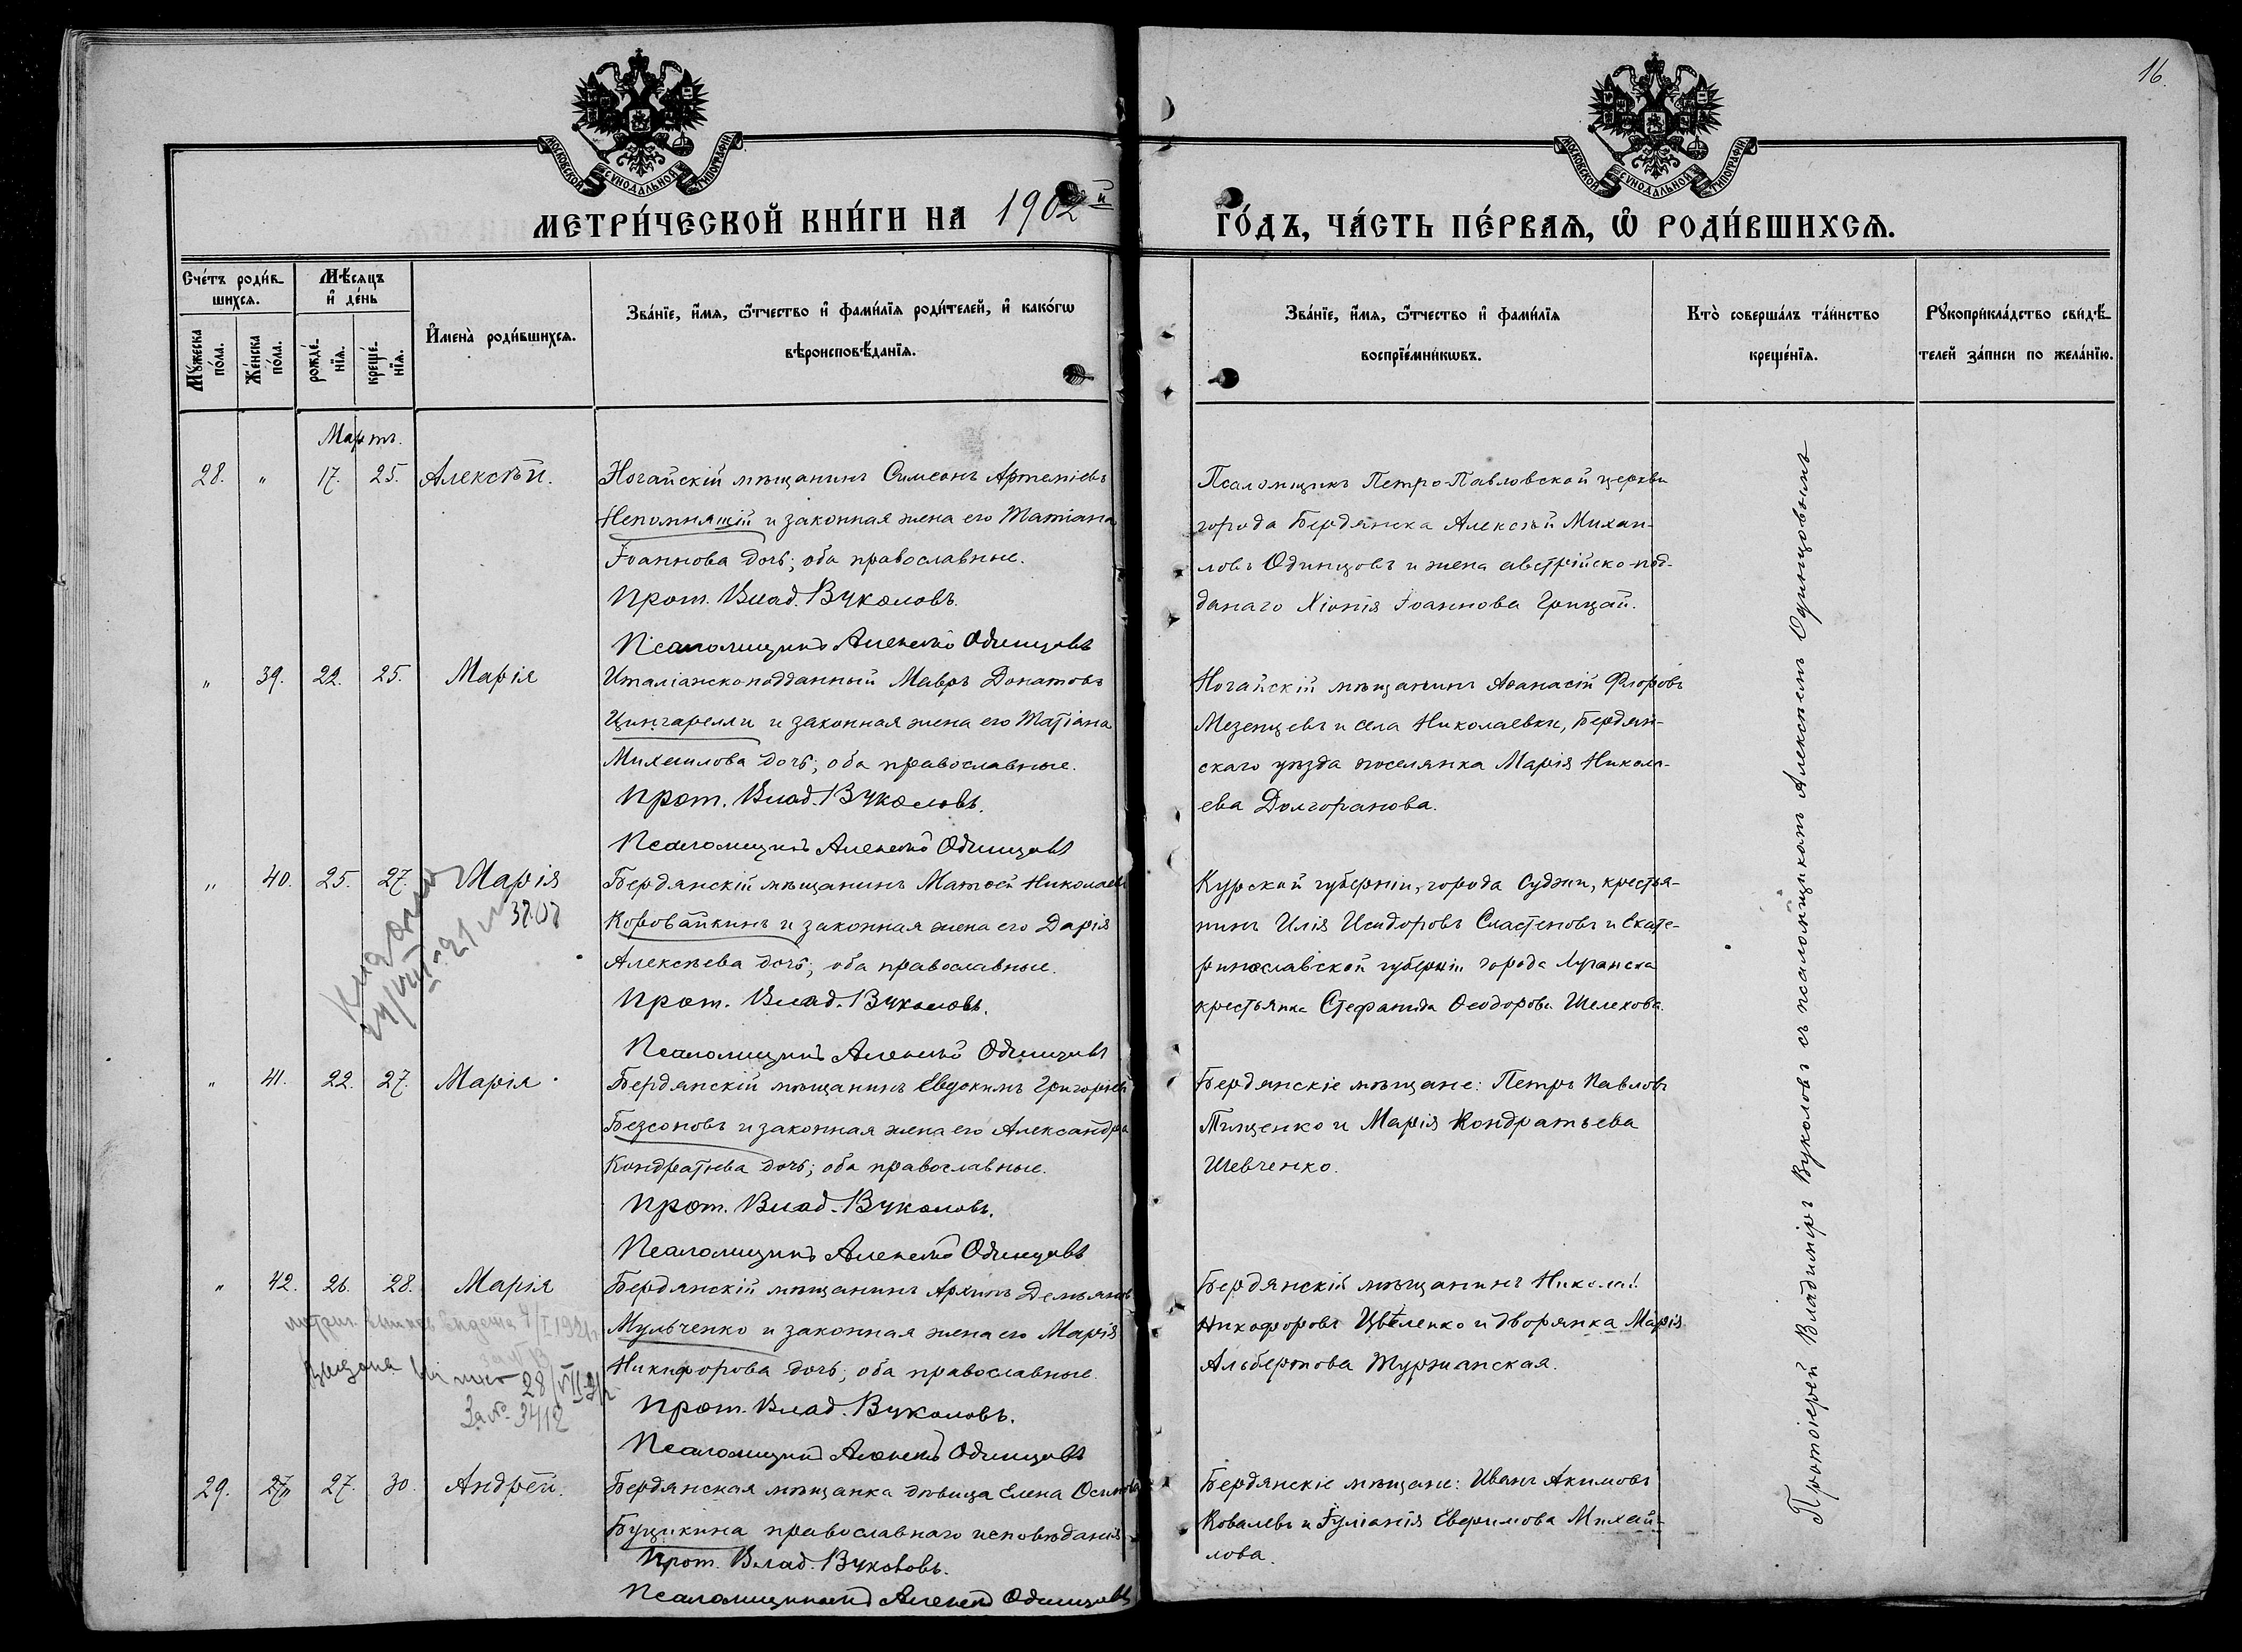 16.
МОСКОВСКОЙ СУНОДАЛЬНОЙ ТИПОГРАФІИ
МОСКОВСКОЙ СУНОДАЛЬНОЙ ТИПОГРАФІИ
МЕТРИ́ЧЕСКОЙ КНИ́ГИ НА 1902й
ГО́ДЪ, ЧА́СТЬ ПЕ́РВАѦ, Ѡ҆ РОДИ́ВШИХСѦ.
Сче́тъ роди́в-
шихсѧ.
Мꙋ́жеска по́ла.
Же́нска по́ла.
Мѣ́сѧцъ
и҆ де́нь
рожде́-
нїѧ.
креще́-
нїѧ.
И҆мена̀ роди́вшихсѧ.
Зва́нїе, и҆́мѧ, ѻ҆́тчество и҆ фами́лїѧ роди́телей, и҆ како́гѡ
вѣроисповѣ́данїѧ.
Зва́нїе, и҆́мѧ, ѻ҆́тчество и҆ фами́лїѧ
воспрїе́мникѡвъ.
Кто̀ соверша́лъ та́инство
креще́нїѧ.
Рꙋкоприкла́дство свидѣ́-
телей за́писи по жела́нїю.
Мартъ.
28. " 17. 25. Алексѣй.
Ногайскій мѣщанинъ Симеонъ Артеміевъ
Непомнящій и законная жена его Татіана
Іоаннова дочь; оба православные.
Прот. Влад. Вуколовъ.
Псаломщикъ Алексѣй Одинцовъ
Псаломщикъ Петро-Павловской церкви
города Бердянска Алексѣй Михаи-
ловъ Одинцовъ и жена австрійско-под-
данаго Хіонія Іоаннова Грицай.
" 39. 22. 25. Марія
Италіанскоподданный Мавръ Донатовъ
Цингарелли и законная жена его Татіана
Михаилова дочь; оба православные.
Прот. Влад. Вуколовъ.
Псаломщикъ Алексѣй Одинцовъ
Ногайскій мѣщанинъ Аѳанасій Флоровъ
Мезенцевъ и села Николаевки, Бердян-
скаго уѣзда поселянка Марія Никола-
ева Долгоранова.
" 40. 25. 27. Марія
Бердянскій мѣщанинъ Матѳей Николаевъ
Коровайкинъ и законная жена его Дарія
Алексѣева дочь; оба православные.
Прот. Влад. Вуколовъ.
Псаломщикъ Алексѣй Одинцовъ
Курской губерніи, города Суджи, крестья-
нинъ Илія Исидоровъ Сластеновъ и Екате-
ринославской губерніи города Луганска
крестьянка Стефанида Ѳеодорова Шелехова.
" 41. 22. 27. Марія
Бердянскій мѣщанинъ Евдокимъ Григорьевъ
Безсоновъ и законная жена его Александра
Кондратьева дочь; оба православные.
Прот. Влад. Вуколовъ.
Псаломщикъ Алексѣй Одинцовъ
Бердянскіе мѣщане: Петръ Павловъ
Тищенко и Марія Кондратьева
Шевченко.
" 42. 26. 28. Марія
Бердянскій мѣщанинъ Архипъ Демьяновъ
Мульченко и законная жена его Марія
Никифорова дочь; оба православные.
Прот. Влад. Вуколовъ.
Псаломщикъ Алексѣй Одинцовъ
28/VII-21г
За № 3412
Бердянскій мѣщанинъ Николай
Никифоровъ Цвѣленко и дворянка Марія
Альбертова Туржанская.
29. 27. 30. Андрей.
Бердянская мѣщанка дѣвица Елена Осипова
Буцикина православнаго исповѣданія
Прот. Влад. Вуколовъ.
Псаломщикъ Алексѣй Одинцовъ
Бердянскіе мѣщане: Иванъ Акимовъ
Ковалевъ и Іуліанія Евфимова Михай-
лова.
Протоіерей Владиміръ Вуколовъ съ псаломщикомъ Алексѣемъ Одинцовымъ